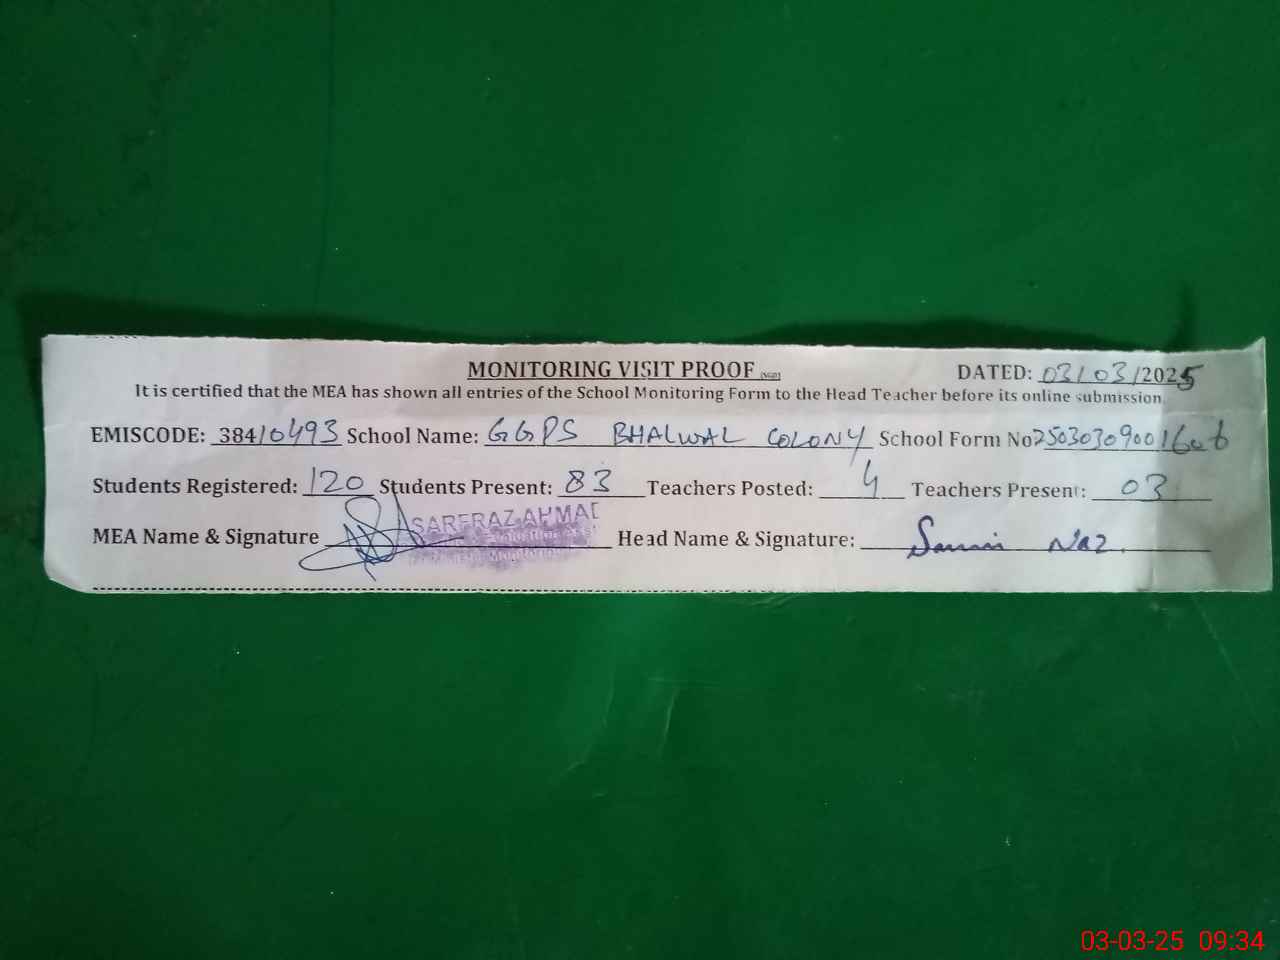 MONITORING VISIT PROOF DATED: 03/03/2025
It is certified that the MEA has shown all entries of the School Monitoring Form to the Head Teacher before its online submission.
EMISCODE: 38410493 School Name: GGPS BHALWAL COLONY School Form No
Students Registered: 120 Students Present: 83 Teachers Posted: 4 Teachers Present: 03
MEA Name & Signature SARFRAZ AHMAD Head Name & Signature: Naz
03-03-25 09:34